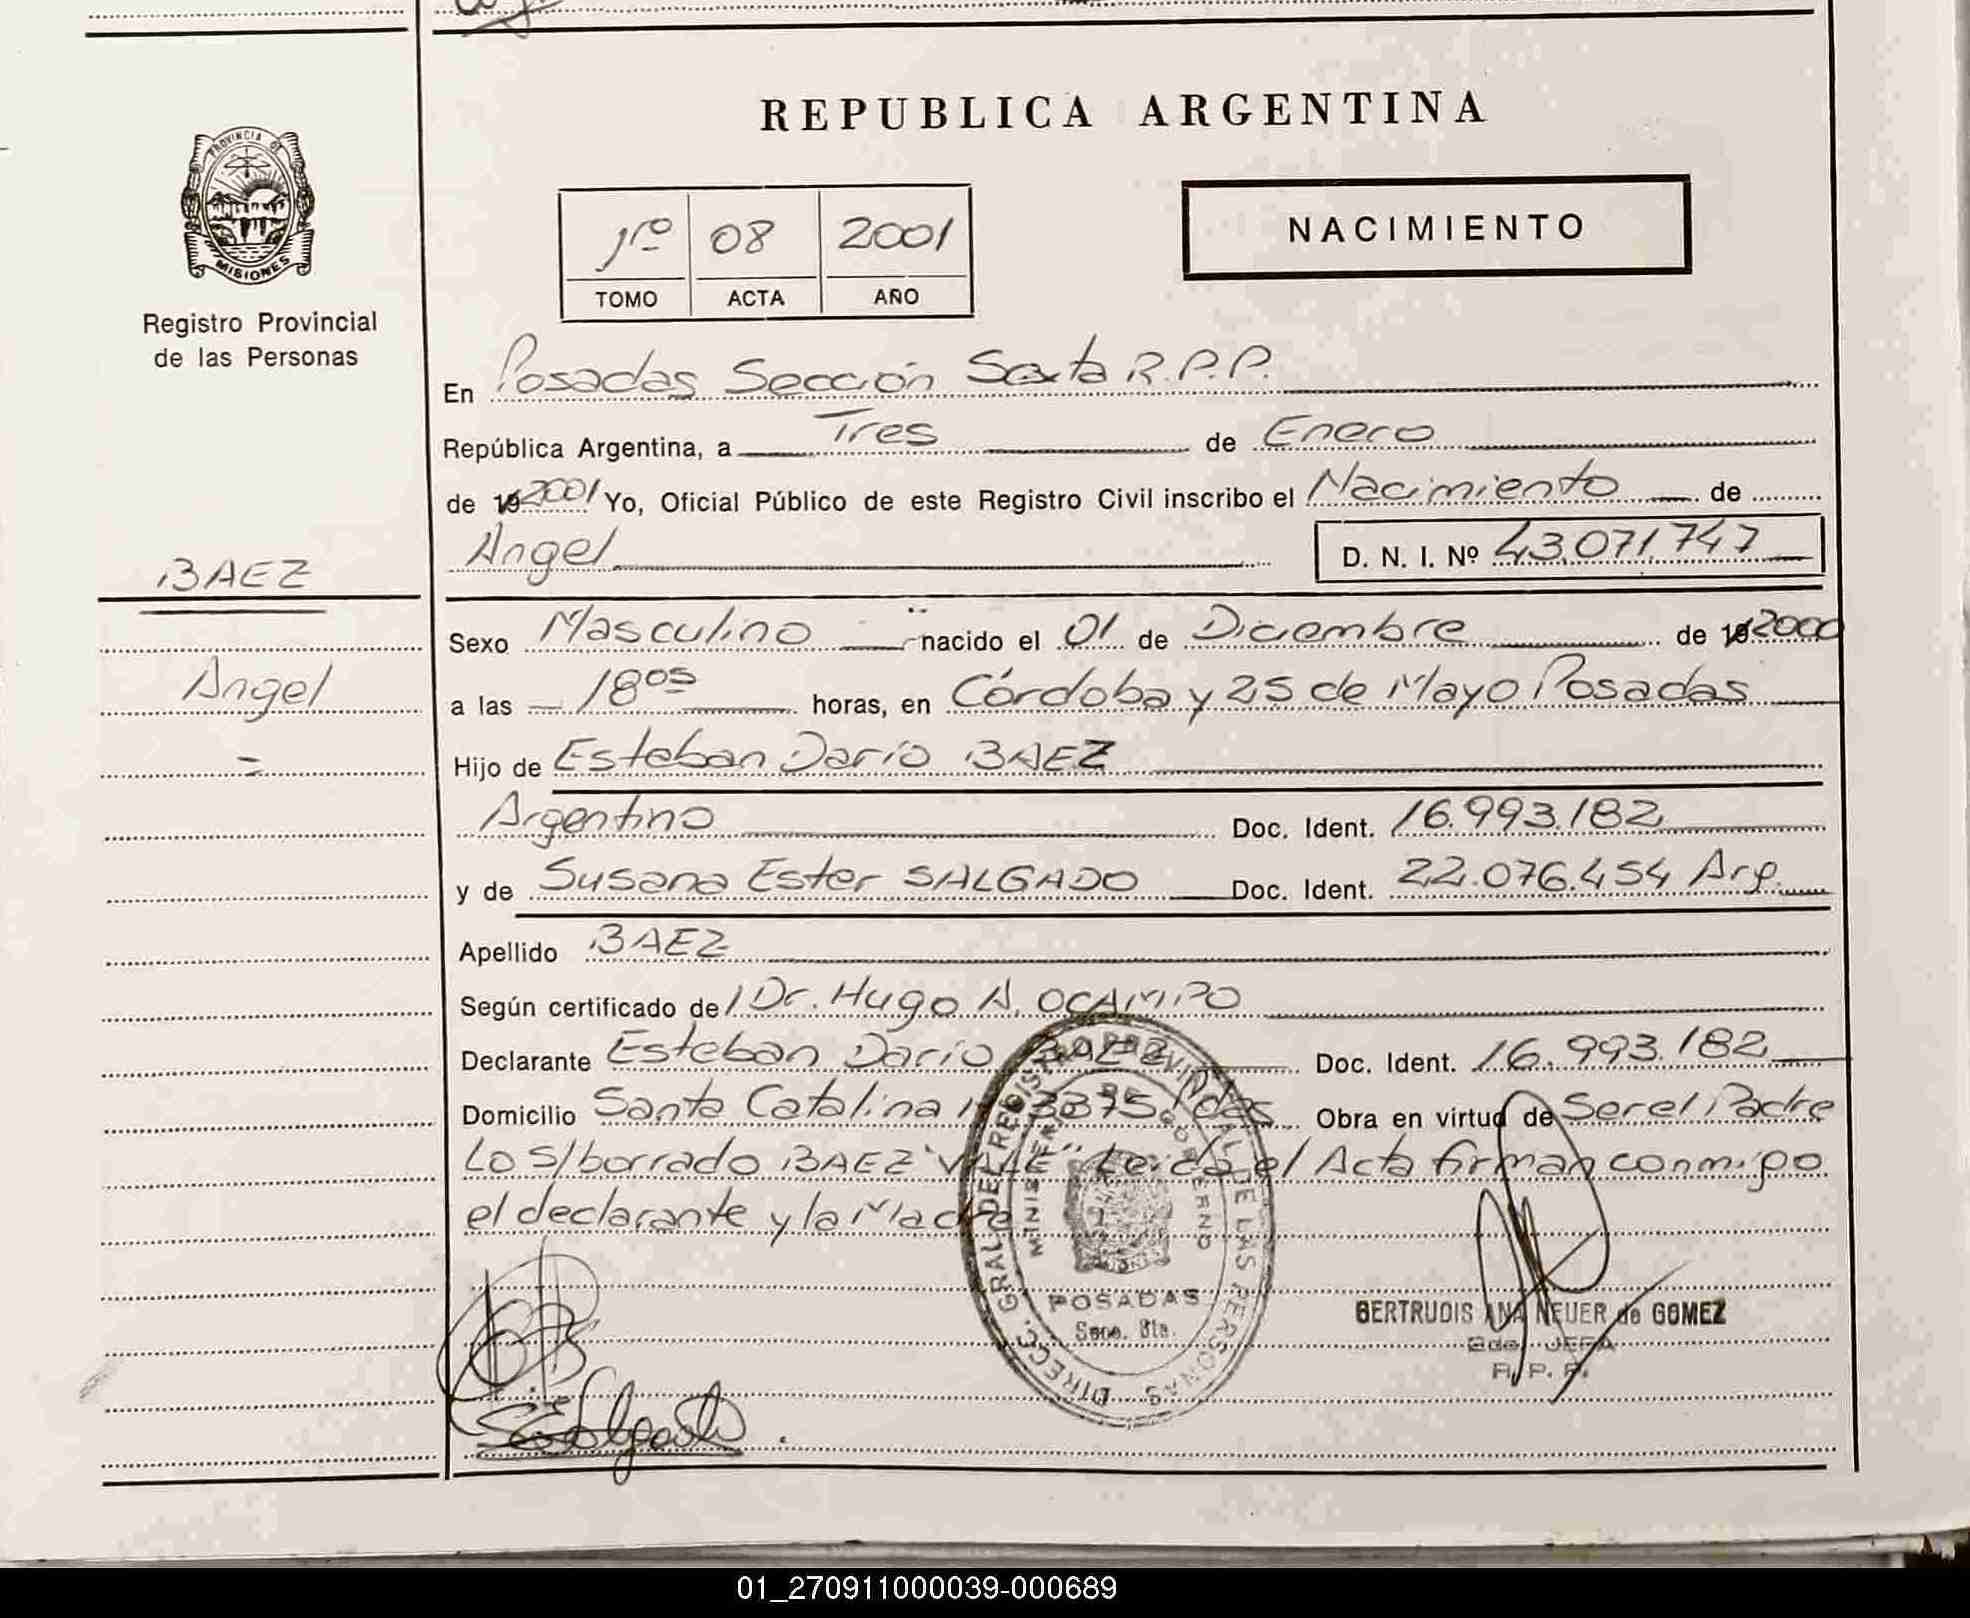 REPUBLICA ARGENTINA
PROVINCIA DE
MISIONES
Registro Provincial
de las Personas
1ro 08 2001
TOMO ACTA AÑO
NACIMIENTO
En Posadas Sección Sexta R.P.P.
República Argentina, a Tres de Enero
de 19 2001 Yo, Oficial Público de este Registro Civil inscribo el Nacimiento de
Angel D. N. I. Nº 43.071.747
BAEZ
Angel
=
Sexo Masculino nacido el 01 de Diciembre de 19 2000
a las 18 05 horas, en Córdoba y 25 de Mayo Posadas
Hijo de Esteban Darío BAEZ
Argentino Doc. Ident. 16.993.182
y de Susana Ester SALGADO Doc. Ident. 22.076.454 Arg.
Apellido BAEZ
Según certificado de l Dr. Hugo A. OCAMPO
Declarante Esteban Darío BAEZ Doc. Ident. 16.993.182
Domicilio Santa Catalina Nº 3375. Pdas Obra en virtud de Ser el Padre
Lo S/borrado BAEZ "VALE" Leída el Acta firman conmigo
el declarante y la Madre
DIRECC. GRAL. DEL REGISTRO PROVINCIAL DE LAS PERSONAS
MINISTERIO DE GOBIERNO
POSADAS
Secc. 6ta.
GERTRUDIS ANA NEUER de GOMEZ
2da. JEFA
R. P. P.
SESalgado
01_270911000039-000689